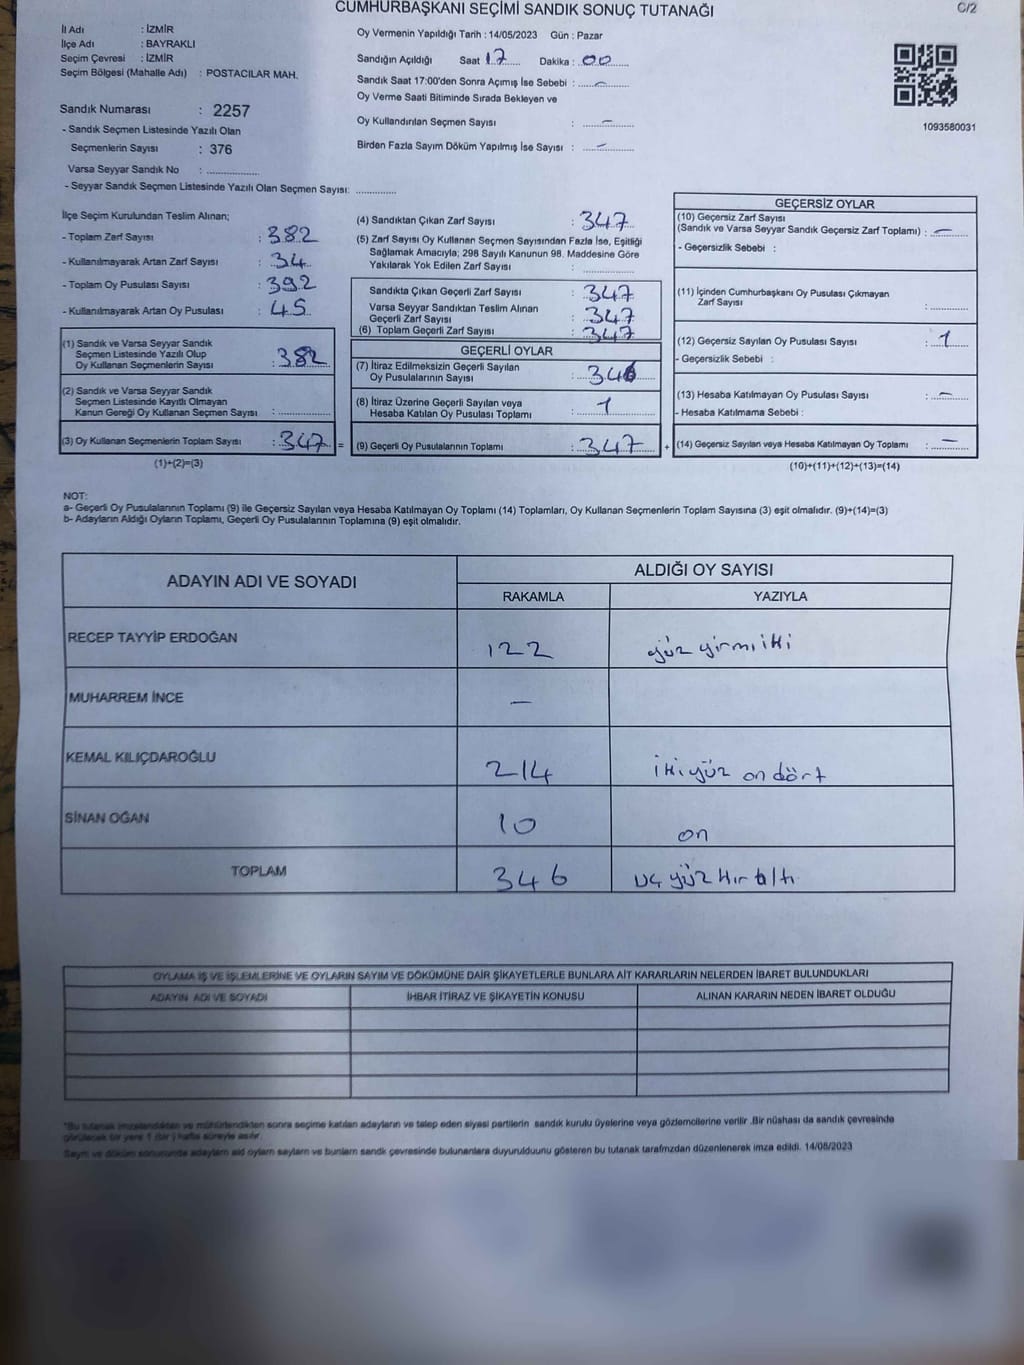 CUMHURBAŞKANI SEÇİMİ SANDIK SONUÇ TUTANAĞI
C/2
İl Adı : İZMİR
İlçe Adı : BAYRAKLI
Seçim Çevresi : İZMİR
Seçim Bölgesi (Mahalle Adı) : POSTACILAR MAH.
Sandık Numarası : 2257
- Sandık Seçmen Listesinde Yazılı Olan
Seçmenlerin Sayısı : 376
Varsa Seyyar Sandık No : ................
- Seyyar Sandık Seçmen Listesinde Yazılı Olan Seçmen Sayısı: ............
Oy Vermenin Yapıldığı Tarih : 14/05/2023 Gün : Pazar
Sandığın Açıldığı Saat 17 Dakika : 00
Sandık Saat 17:00'den Sonra Açımış İse Sebebi : —
Oy Verme Saati Bitiminde Sırada Bekleyen ve
Oy Kullandırılan Seçmen Sayısı : —
Birden Fazla Sayım Döküm Yapılmış İse Sayısı : —
1093580031
İlçe Seçim Kurulundan Teslim Alınan;
- Toplam Zarf Sayısı : 382
- Kullanılmayarak Artan Zarf Sayısı : 34
- Toplam Oy Pusulası Sayısı : 392
- Kullanılmayarak Artan Oy Pusulası : 45
(1) Sandık ve Varsa Seyyar Sandık
Seçmen Listesinde Yazılı Olup
Oy Kullanan Seçmenlerin Sayısı : 382
(2) Sandık ve Varsa Seyyar Sandık
Seçmen Listesinde Kayıtlı Olmayan
Kanun Gereği Oy Kullanan Seçmen Sayısı : ............
(3) Oy Kullanan Seçmenlerin Toplam Sayısı : 347 =
(1)+(2)=(3)
(4) Sandıktan Çıkan Zarf Sayısı : 347
(5) Zarf Sayısı Oy Kullanan Seçmen Sayısından Fazla İse, Eşitliği
Sağlamak Amacıyla; 298 Sayılı Kanunun 98. Maddesine Göre
Yakılarak Yok Edilen Zarf Sayısı : ............
Sandıkta Çıkan Geçerli Zarf Sayısı : 347
Varsa Seyyar Sandıktan Teslim Alınan
Geçerli Zarf Sayısı : 347
(6) Toplam Geçerli Zarf Sayısı : 347
GEÇERLİ OYLAR
(7) İtiraz Edilmeksizin Geçerli Sayılan
Oy Pusulalarının Sayısı : 346
(8) İtiraz Üzerine Geçerli Sayılan veya
Hesaba Katılan Oy Pusulası Toplamı : 1
(9) Geçerli Oy Pusulalarının Toplamı : 347 +
GEÇERSİZ OYLAR
(10) Geçersiz Zarf Sayısı
(Sandık ve Varsa Seyyar Sandık Geçersiz Zarf Toplamı) : —
- Geçersizlik Sebebi :
(11) İçinden Cumhurbaşkanı Oy Pusulası Çıkmayan
Zarf Sayısı : ............
(12) Geçersiz Sayılan Oy Pusulası Sayısı : 1
- Geçersizlik Sebebi :
(13) Hesaba Katılmayan Oy Pusulası Sayısı : —
- Hesaba Katılmama Sebebi :
(14) Geçersiz Sayılan veya Hesaba Katılmayan Oy Toplamı : —
(10)+(11)+(12)+(13)=(14)
NOT:
a- Geçerli Oy Pusulalarının Toplamı (9) ile Geçersiz Sayılan veya Hesaba Katılmayan Oy Toplamı (14) Toplamları, Oy Kullanan Seçmenlerin Toplam Sayısına (3) eşit olmalıdır. (9)+(14)=(3)
b- Adayların Aldığı Oyların Toplamı, Geçerli Oy Pusulalarının Toplamına (9) eşit olmalıdır.
ADAYIN ADI VE SOYADI
ALDIĞI OY SAYISI
RAKAMLA YAZIYLA
RECEP TAYYİP ERDOĞAN 122 yüz yirmi iki
MUHARREM İNCE —
KEMAL KILIÇDAROĞLU 214 iki yüz on dört
SİNAN OĞAN 10 on
TOPLAM 346 üç yüz kırk altı
OYLAMA İŞ VE İŞLEMLERİNE VE OYLARIN SAYIM VE DÖKÜMÜNE DAİR ŞİKAYETLERLE BUNLARA AİT KARARLARIN NELERDEN İBARET BULUNDUKLARI
ADAYIN ADI VE SOYADI İHBAR İTİRAZ VE ŞİKAYETİN KONUSU ALINAN KARARIN NEDEN İBARET OLDUĞU
"Bu tutanak imzalandıktan ve mühürlendikten sonra seçime katılan adayların ve talep eden siyasi partilerin sandık kurulu üyelerine veya gözlemcilerine verilir .Bir nüshası da sandık çevresinde
görülecek bir yere 1 (bir) hafta süreyle asılır.
Sayım ve döküm sonucunda adayların ald oyların sayların ve bunların sandk çevresinde bulunanlara duyurulduunu gösteren bu tutanak tarafmzdan düzenlenerek imza edildi. 14/05/2023